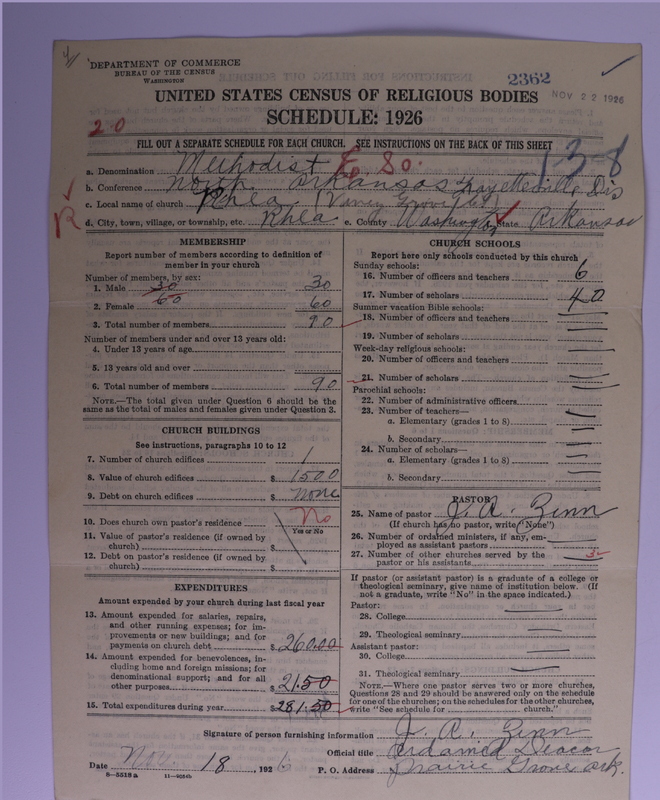 DEPARTMENT OF COMMERCE
BUREAU OF THE CENSUS
WASHINGTON
2362
NOV 22 1926
UNITED STATES CENSUS OF RELIGIOUS BODIES
SCHEDULE: 1926
20
FILL OUT A SEPARATE SCHEDULE FOR EACH CHURCH. SEE INSTRUCTIONS ON THE BACK OF THIS SHEET
13-8
a. Denomination Methodist E. So.
b. Conference North Arkansas Fayetteville Dis
c. Local name of church Rhea
R
d. City, town, village, or township, etc. Rhea e. County Washington State Arkansas
MEMBERSHIP
Report number of members according to definition of member in your church
Number of members, by sex:
1. Male 30 30
2. Female 60 60
3. Total number of members 90
Number of members under and over 13 years old:
4. Under 13 years of age
5. 13 years old and over
6. Total number of members 90
NOTE.—The total given under Question 6 should be the same as the total of males and females given under Question 3.
CHURCH BUILDINGS
See instructions, paragraphs 10 to 12
7. Number of church edifices 1
8. Value of church edifices $ 1500
9. Debt on church edifices $ none
10. Does church own pastor's residence No
Yes or No
11. Value of pastor's residence (if owned by church) $
12. Debt on pastor's residence (if owned by church) $
EXPENDITURES
Amount expended by your church during last fiscal year
13. Amount expended for salaries, repairs, and other running expenses; for improvements or new buildings; and for payments on church debt $ 260.00
14. Amount expended for benevolences, including home and foreign missions; for denominational support; and for all other purposes $ 21.50
15. Total expenditures during year $ 281.50
CHURCH SCHOOLS
Report here only schools conducted by this church
Sunday schools:
16. Number of officers and teachers 6
17. Number of scholars 40
Summer vacation Bible schools:
18. Number of officers and teachers
19. Number of scholars
Week-day religious schools:
20. Number of officers and teachers
21. Number of scholars
Parochial schools:
22. Number of administrative officers
23. Number of teachers—
a. Elementary (grades 1 to 8)
b. Secondary
24. Number of scholars—
a. Elementary (grades 1 to 8)
b. Secondary
PASTOR
25. Name of pastor J. A. Zinn
(If church has no pastor, write "None")
26. Number of ordained ministers, if any, employed as assistant pastors
27. Number of other churches served by the pastor or his assistants
If pastor (or assistant pastor) is a graduate of a college or theological seminary, give name of institution below. (If not a graduate, write "No" in the space indicated.)
Pastor:
28. College
29. Theological seminary
Assistant pastor:
30. College
31. Theological seminary
NOTE.—Where one pastor serves two or more churches, Questions 28 and 29 should be answered only on the schedule for one of the churches; on the schedules for the other churches, write "See schedule for church."
Signature of person furnishing information J. A. Zinn
Official title Ordained Deacon
Date Nov. 18, 1926 P. O. Address Prairie Grove Ark.
8-5518a 11-9254b